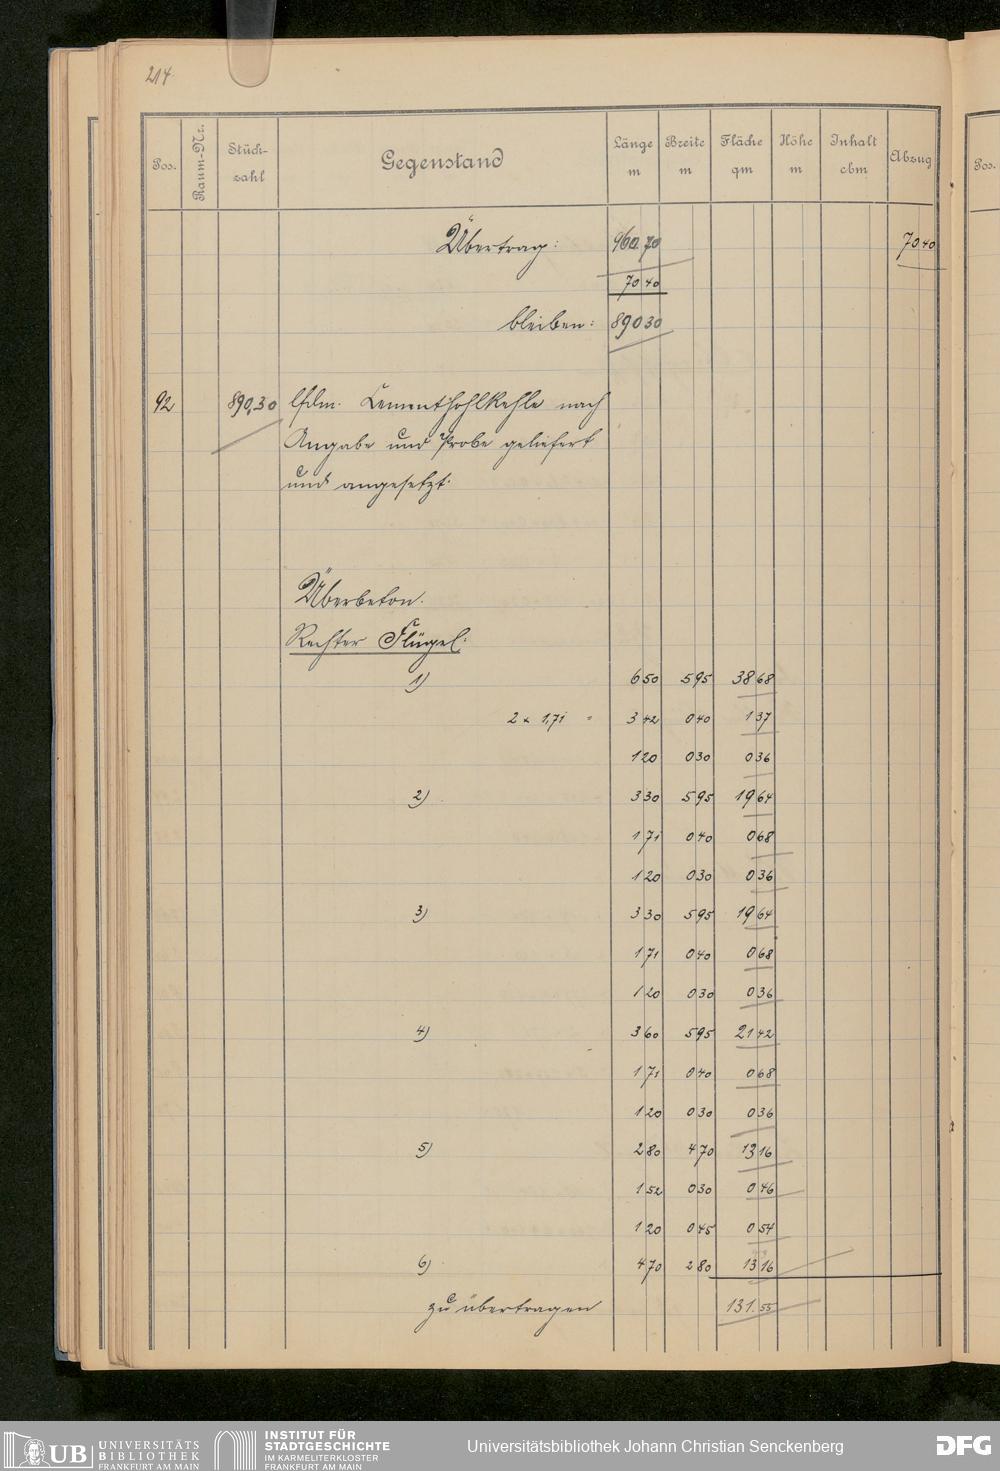 214.
Pos. Raum-Nr. Stückzahl Gegenstand Länge m Breite m Fläche qm Höhe m Inhalt cbm Abzug
Pos.
Übertrag: 960.70 70 40
70 40
bleiben: 890 30
92 890,30 lfdm. Cementhohlkehle nach
Angabe und Probe geliefert
und angesetzt.
Überbeton.
Rechter Flügel:
1) 6 50 5 95 38 68
2 x 1,71 = 3 42 0 40 1 37
1 20 0 30 0 36
2) 3 30 5 95 19 64
1 71 0 40 0 68
1 20 0 30 0 36
3) 3 30 5 95 19 64
1 71 0 40 0 68
1 20 0 30 0 36
4) 3 60 5 95 21 42
1 71 0 40 0 68
1 20 0 30 0 36
5) 2 80 4 70 13 16
1 52 0 30 0 46
1 20 0 45 0 54
6) 4 70 2 80 13 16
zu übertragen 131.55
UB UNIVERSITÄTS
BIBLIOTHEK
FRANKFURT AM MAIN
INSTITUT FÜR
STADTGESCHICHTE
IM KARMELITERKLOSTER
FRANKFURT AM MAIN
Universitätsbibliothek Johann Christian Senckenberg
DFG